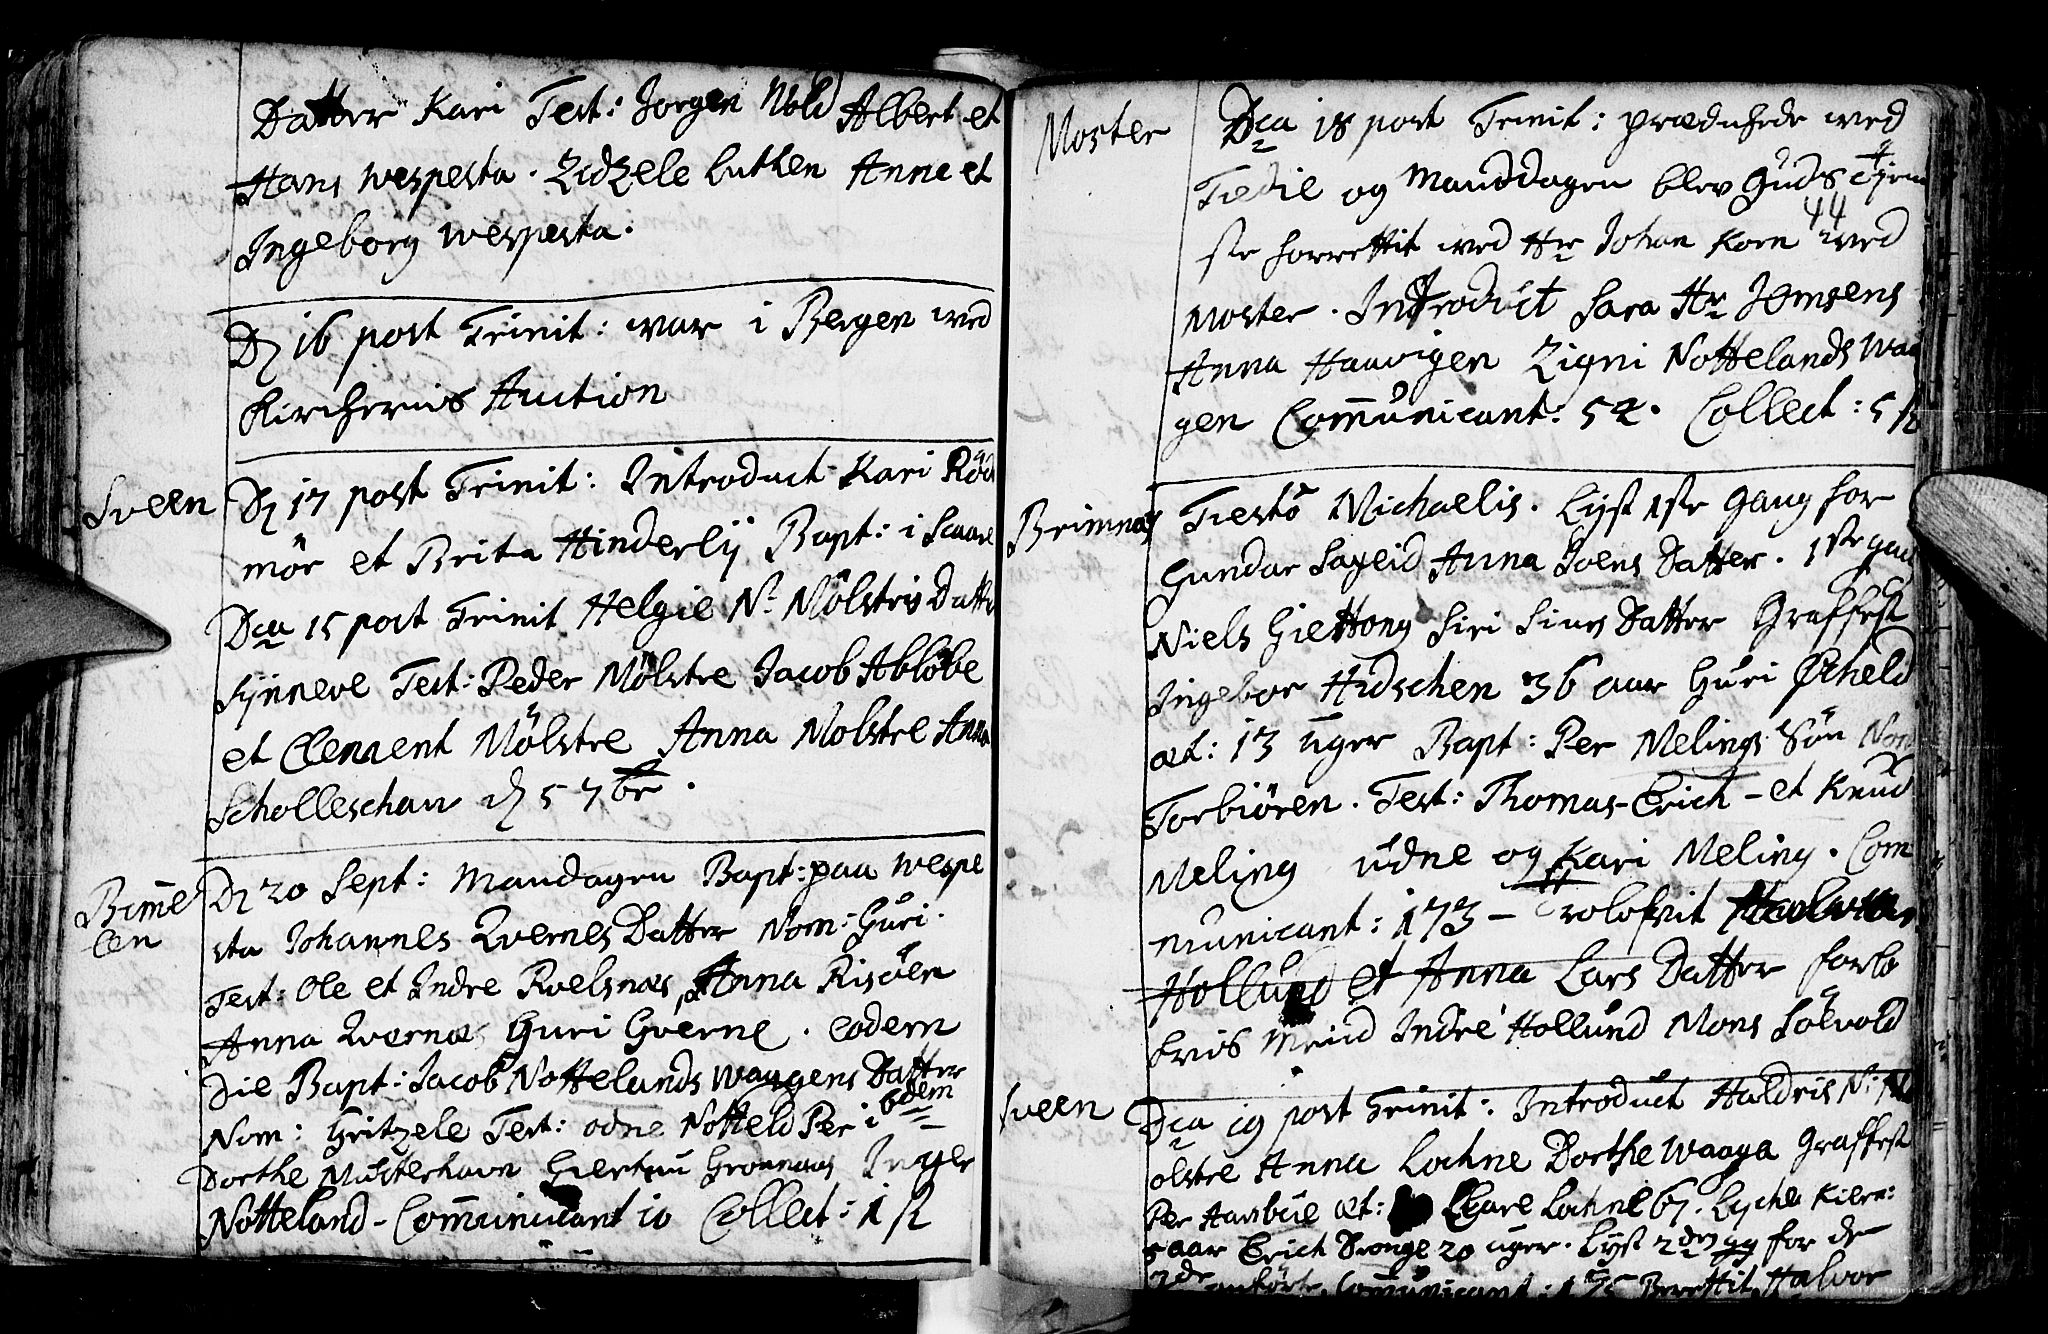 Datter Kari Test: Jorgen Wold Albert et
Hans Wespesta. Zidzele Luthen Anne et
Ingeborg Wespesta.
D 16 post Trinit: war i Bergen wed
Kirchernis Auction
Sveen
D 17 post Trinit: Introduct Kari Röd
mör et Brita Hinderlij Bapt: i Scaare
Dca 15 post Trinit Helgie N. Mölstris Datter
Sÿnneve Test: Peder Mölstre Jacob Abløbe
et Clement Mölstre Anna Molstre Anna
Scholleschau d 5 7br.
Bømme
len
D 20 Sept: Mandagen Bapt: paa Wespe
sta Johannes Qvernes Datter Nom: Guri.
Test: Ole et Indre Roelsnæs, Anna Risöen
Anna Qvernæs Guri Gverne. eodem
Die Bapt: Jacob Nottelands Waagens Datter
Nom: Gritzele Test: odne Notteld Per i odem
Dorthe Musterhavn Giertru Gronnaas Inger
Notteland - Communicant 10 Collect: 1 ß
Moster
44
Dca 18 post Trinit: prædichede wed
Tiedie og Manddagen blev Guds Tjene
ste forrettit wed Hr Johan Korn wed
Moster. Introduct Sara Hr Jemsens
Anna Haawigen Zigni Nottelands Waa
gen Communicant: 52. Collect: 5 ß
Brimnæs
Festo Michaelis. Lyst 1ste Gang for
Gundar Sageid Anna Joens Datter. 1ste gang
Niels Giettong Siri Sines Datter Graffest
Ingebor Hidschen 36 aar Guri Økeld
æt: 13 uger Bapt: Per Melings Sön Nom
Torbiören. Test: Thomas - Erich - et Knud
Meling udne og Kari Meling. Com
municant: 173 - Trolofvit
Hollund et Anna Lars Datter forlo
fvis Meind Indre Hollund Mons Solvold
Sveen
Dca 19 post Trinit: Introduct Haldris N:
olstre Anna Lochne Dorthe Waaga Graffest
Per Haribue æt: Clare Lochne 67. Lyche Kiern:
5 aar Erich Dronge 20 uger. Lyst 2den gg for de
anförte Communicant: 175 Berettit Halvor